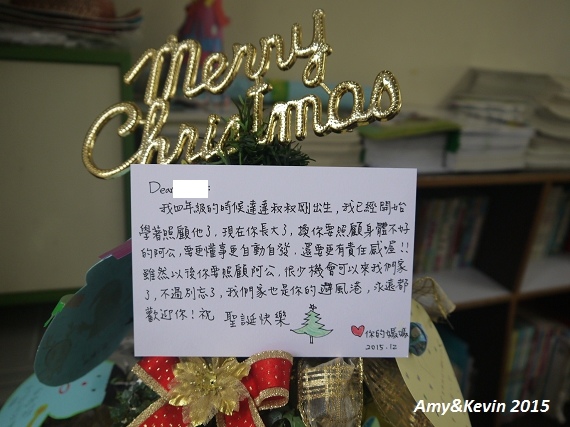 Merry
Christmas
Dear :
我四年級的時候達達叔叔剛出生，我已經開始
學著照顧他了，現在你長大了，換你要照顧身體不好
的阿公，要更懂事更自動自發，還要更有責任感喔！！
雖然以後你要照顧阿公，很少機會可以來我們家
了，不過別忘了，我們家也是你的避風港，永遠都
歡迎你！祝 聖誕快樂
你的媽媽
2015.12
Amy&Kevin 2015